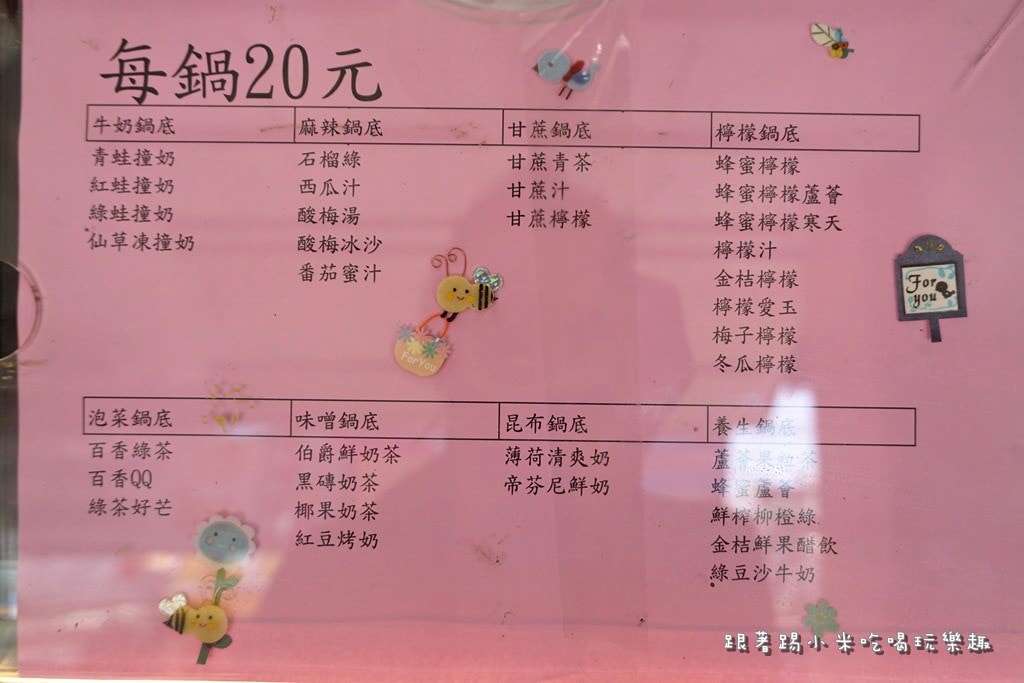 每鍋20元
牛奶鍋底 麻辣鍋底 甘蔗鍋底 檸檬鍋底
青蛙撞奶 石榴綠 甘蔗青茶 蜂蜜檸檬
紅蛙撞奶 西瓜汁 甘蔗汁 蜂蜜檸檬蘆薈
綠蛙撞奶 酸梅湯 甘蔗檸檬 蜂蜜檸檬寒天
仙草凍撞奶 酸梅冰沙 檸檬汁
番茄蜜汁 金桔檸檬
檸檬愛玉
梅子檸檬
冬瓜檸檬
For you
ForYou
泡菜鍋底 味噌鍋底 昆布鍋底 養生鍋底
百香綠茶 伯爵鮮奶茶 薄荷清爽奶 蘆薈果粒茶
百香QQ 黑磚奶茶 帝芬尼鮮奶 蜂蜜蘆薈
綠茶好芒 椰果奶茶 鮮榨柳橙綠
紅豆烤奶 金桔鮮果醋飲
綠豆沙牛奶
跟著踢小米吃喝玩樂趣